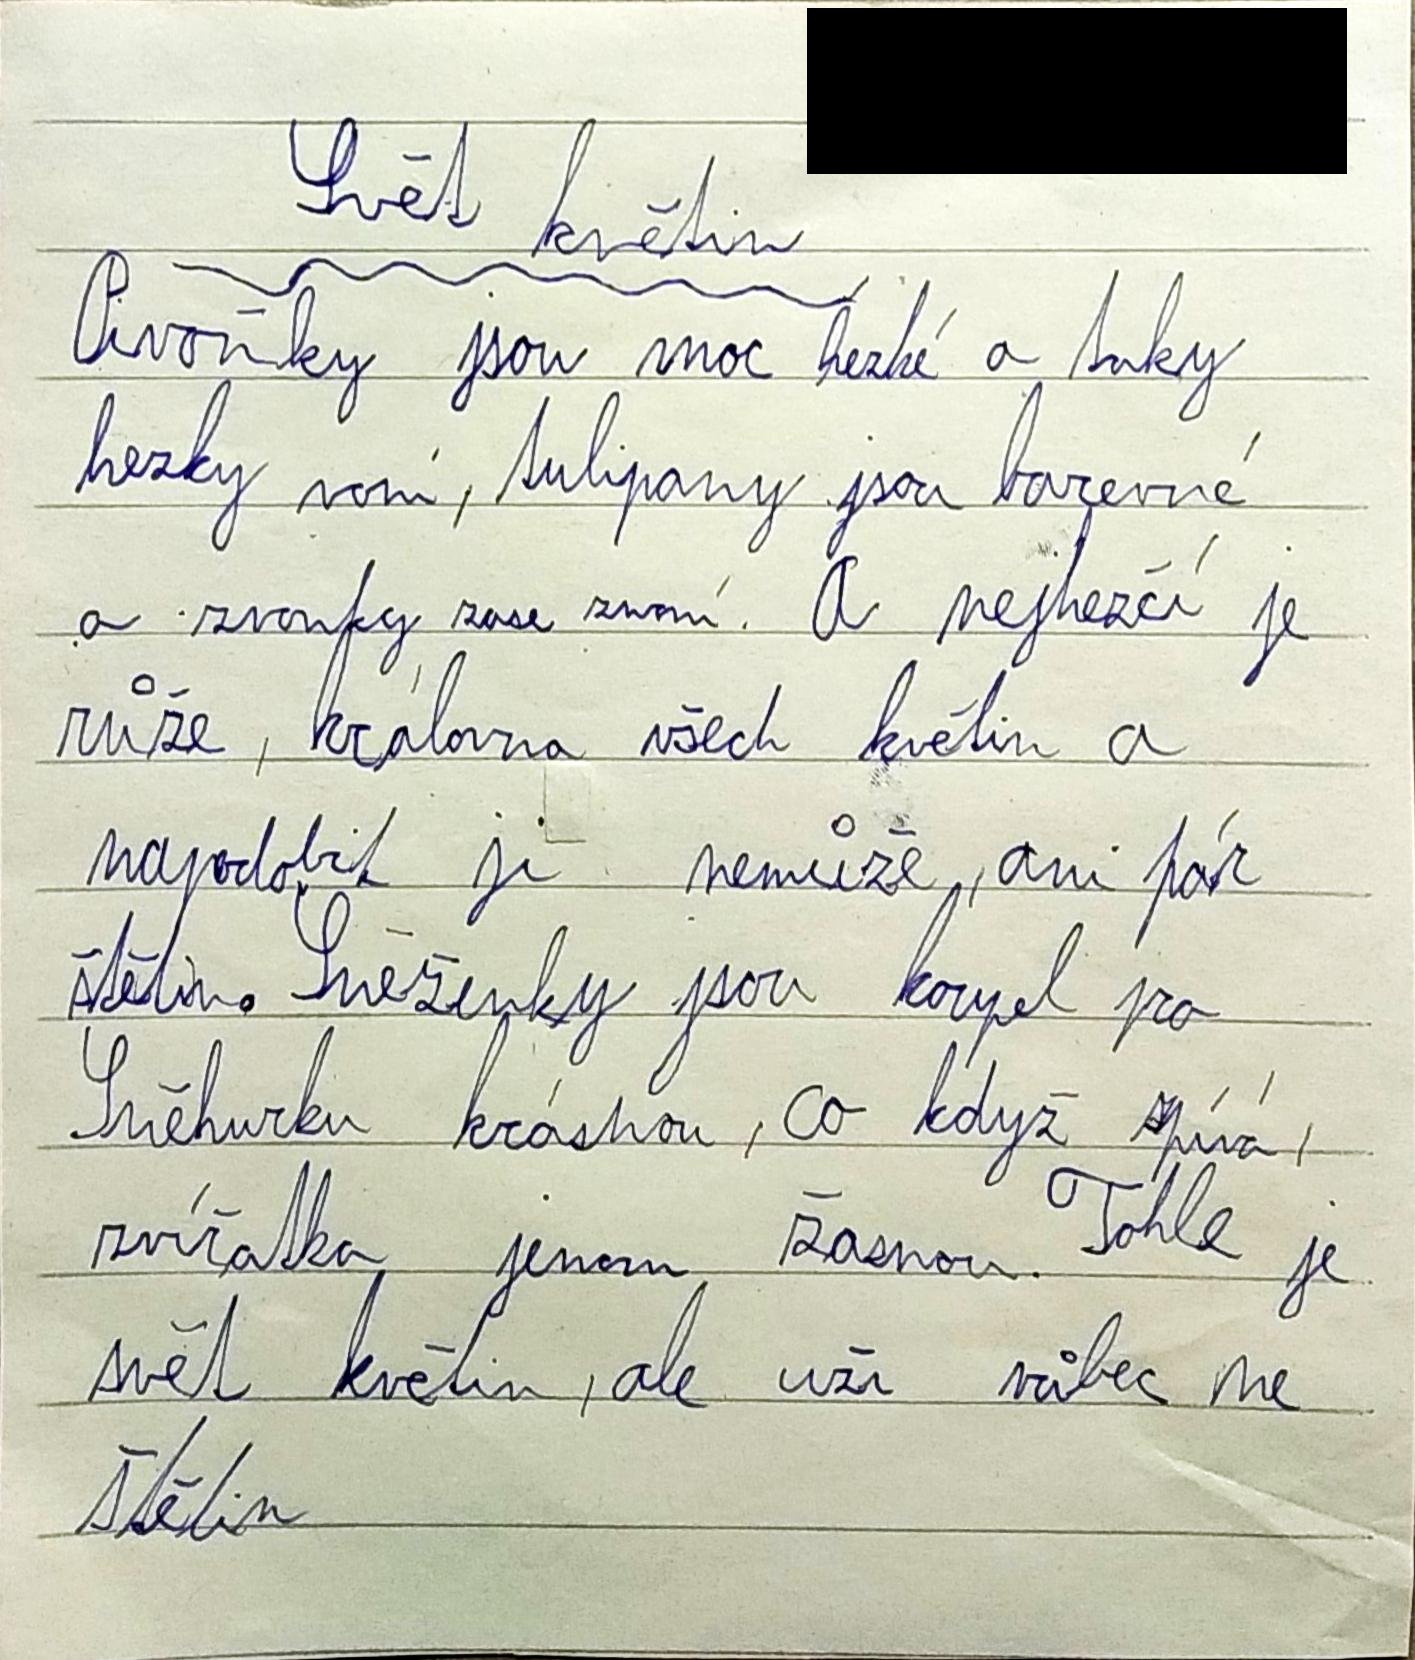 Svět květin
Pivoňky jsou moc hezké a taky
hezky voní, tulipany jsou barevné
a zvonky zase zvoní. A nejhezčí je
růže, královna všech květin a
napodobit ji nemůže, ani pár
štětin. Sněženky jsou koupel pro
Sněhurku krásnou, co když zpívá,
zvířatka jenom žasnou. Tohle je
svět květin, ale uži vůbec ne
štětin